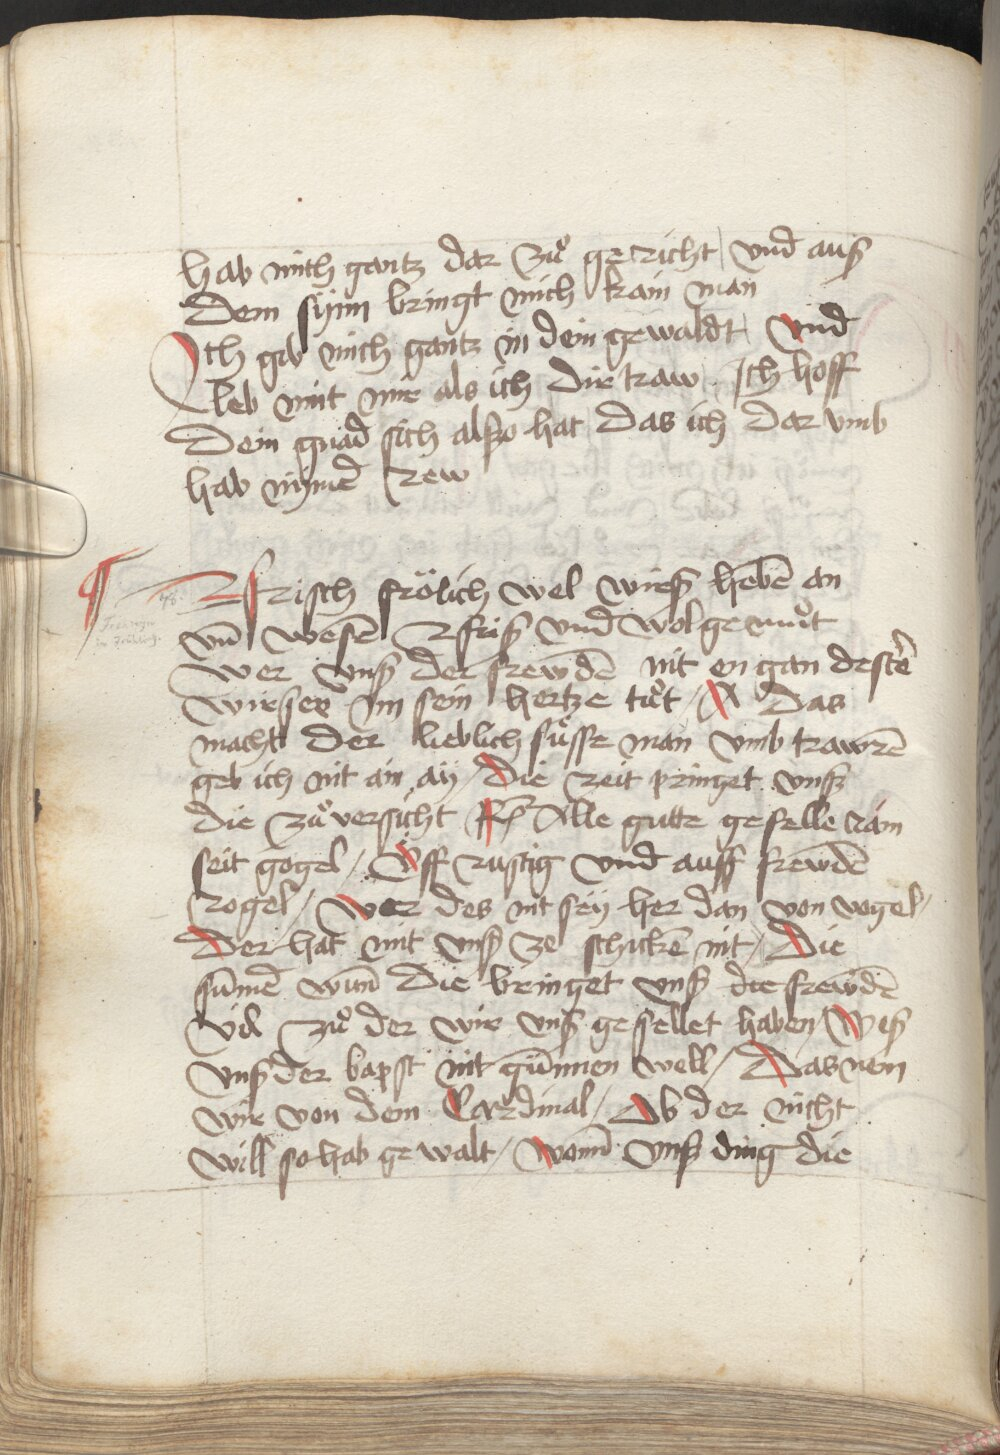 hab mich gantz dar zuͦ gericht / vnd ausß
dem synn bringt mich kain man
Ich gib mich gantz in dein gewaldt / Vnd
leb mit mir als ich dir traw Ich hoff
dein gnad sich alszo hat das ich dar vmb
hab nÿmer̄ rew
Frisch frölich wel wirß hebēn an
vn̄ wesen̄ Rfrisß vnd wol gemuͦt
wer vnß der frewdē nit en gan dester̄
wirser im sein hertze tuͦt / A Das
macht der lieblich suͤsse man vmb trawrē
geb ich nit ain aÿ / Die zeit pringet vnß
die zuͦversicht Rͫ Alle gutte geselle nām
seit gogel / Vff rustig vnd auff frewdē
rogel / wer des nit seÿ her dan von vogel /
Der hat mit vnß ze schickē nit / Die
summer̄ wun̄ die bringet vnß die frewdē
vil zuͦ der wir vnß gesellet haben / Wisß
vnß der bapst nit günnen well / Das nem
wir von dem Cardinal / Ob der nicht
will so hab gewalt / wonn̄ vnß ding die